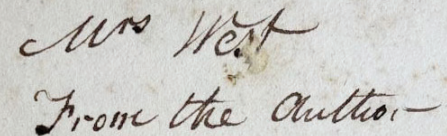 Mrs West
From the Author